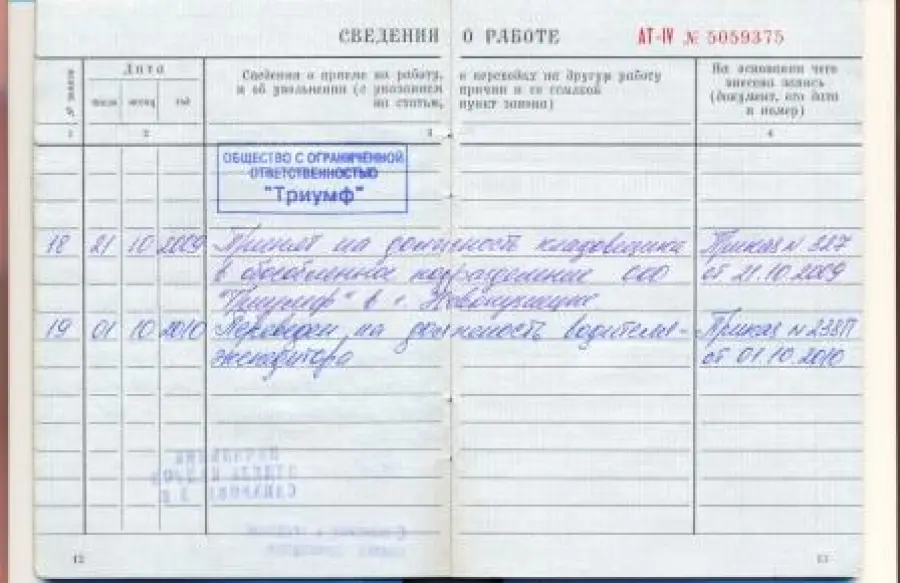 СВЕДЕНИЯ О РАБОТЕ АТ-IV № 5059375
Дата
Сведения о приеме на работу, о переводах на другую работу
и об увольнении (с указанием причин и со ссылкой
на статью, пункт закона)
На основании чего
внесена запись
(документ, его дата
и номер)
№ записи
число месяц год
1 2 3 4
ОБЩЕСТВО С ОГРАНИЧЕННОЙ
ОТВЕТСТВЕННОСТЬЮ
"Триумф"
18 21 10 2009 Принят на должность кладовщика Приказ № 327
в обособленное подразделение ООО от 21.10.2009
"Триумф" в г. Новокузнецке
19 01 10 2010 Переведен на должность водителя- Приказ № 238П
экспедитора от 01.10.2010
12 13